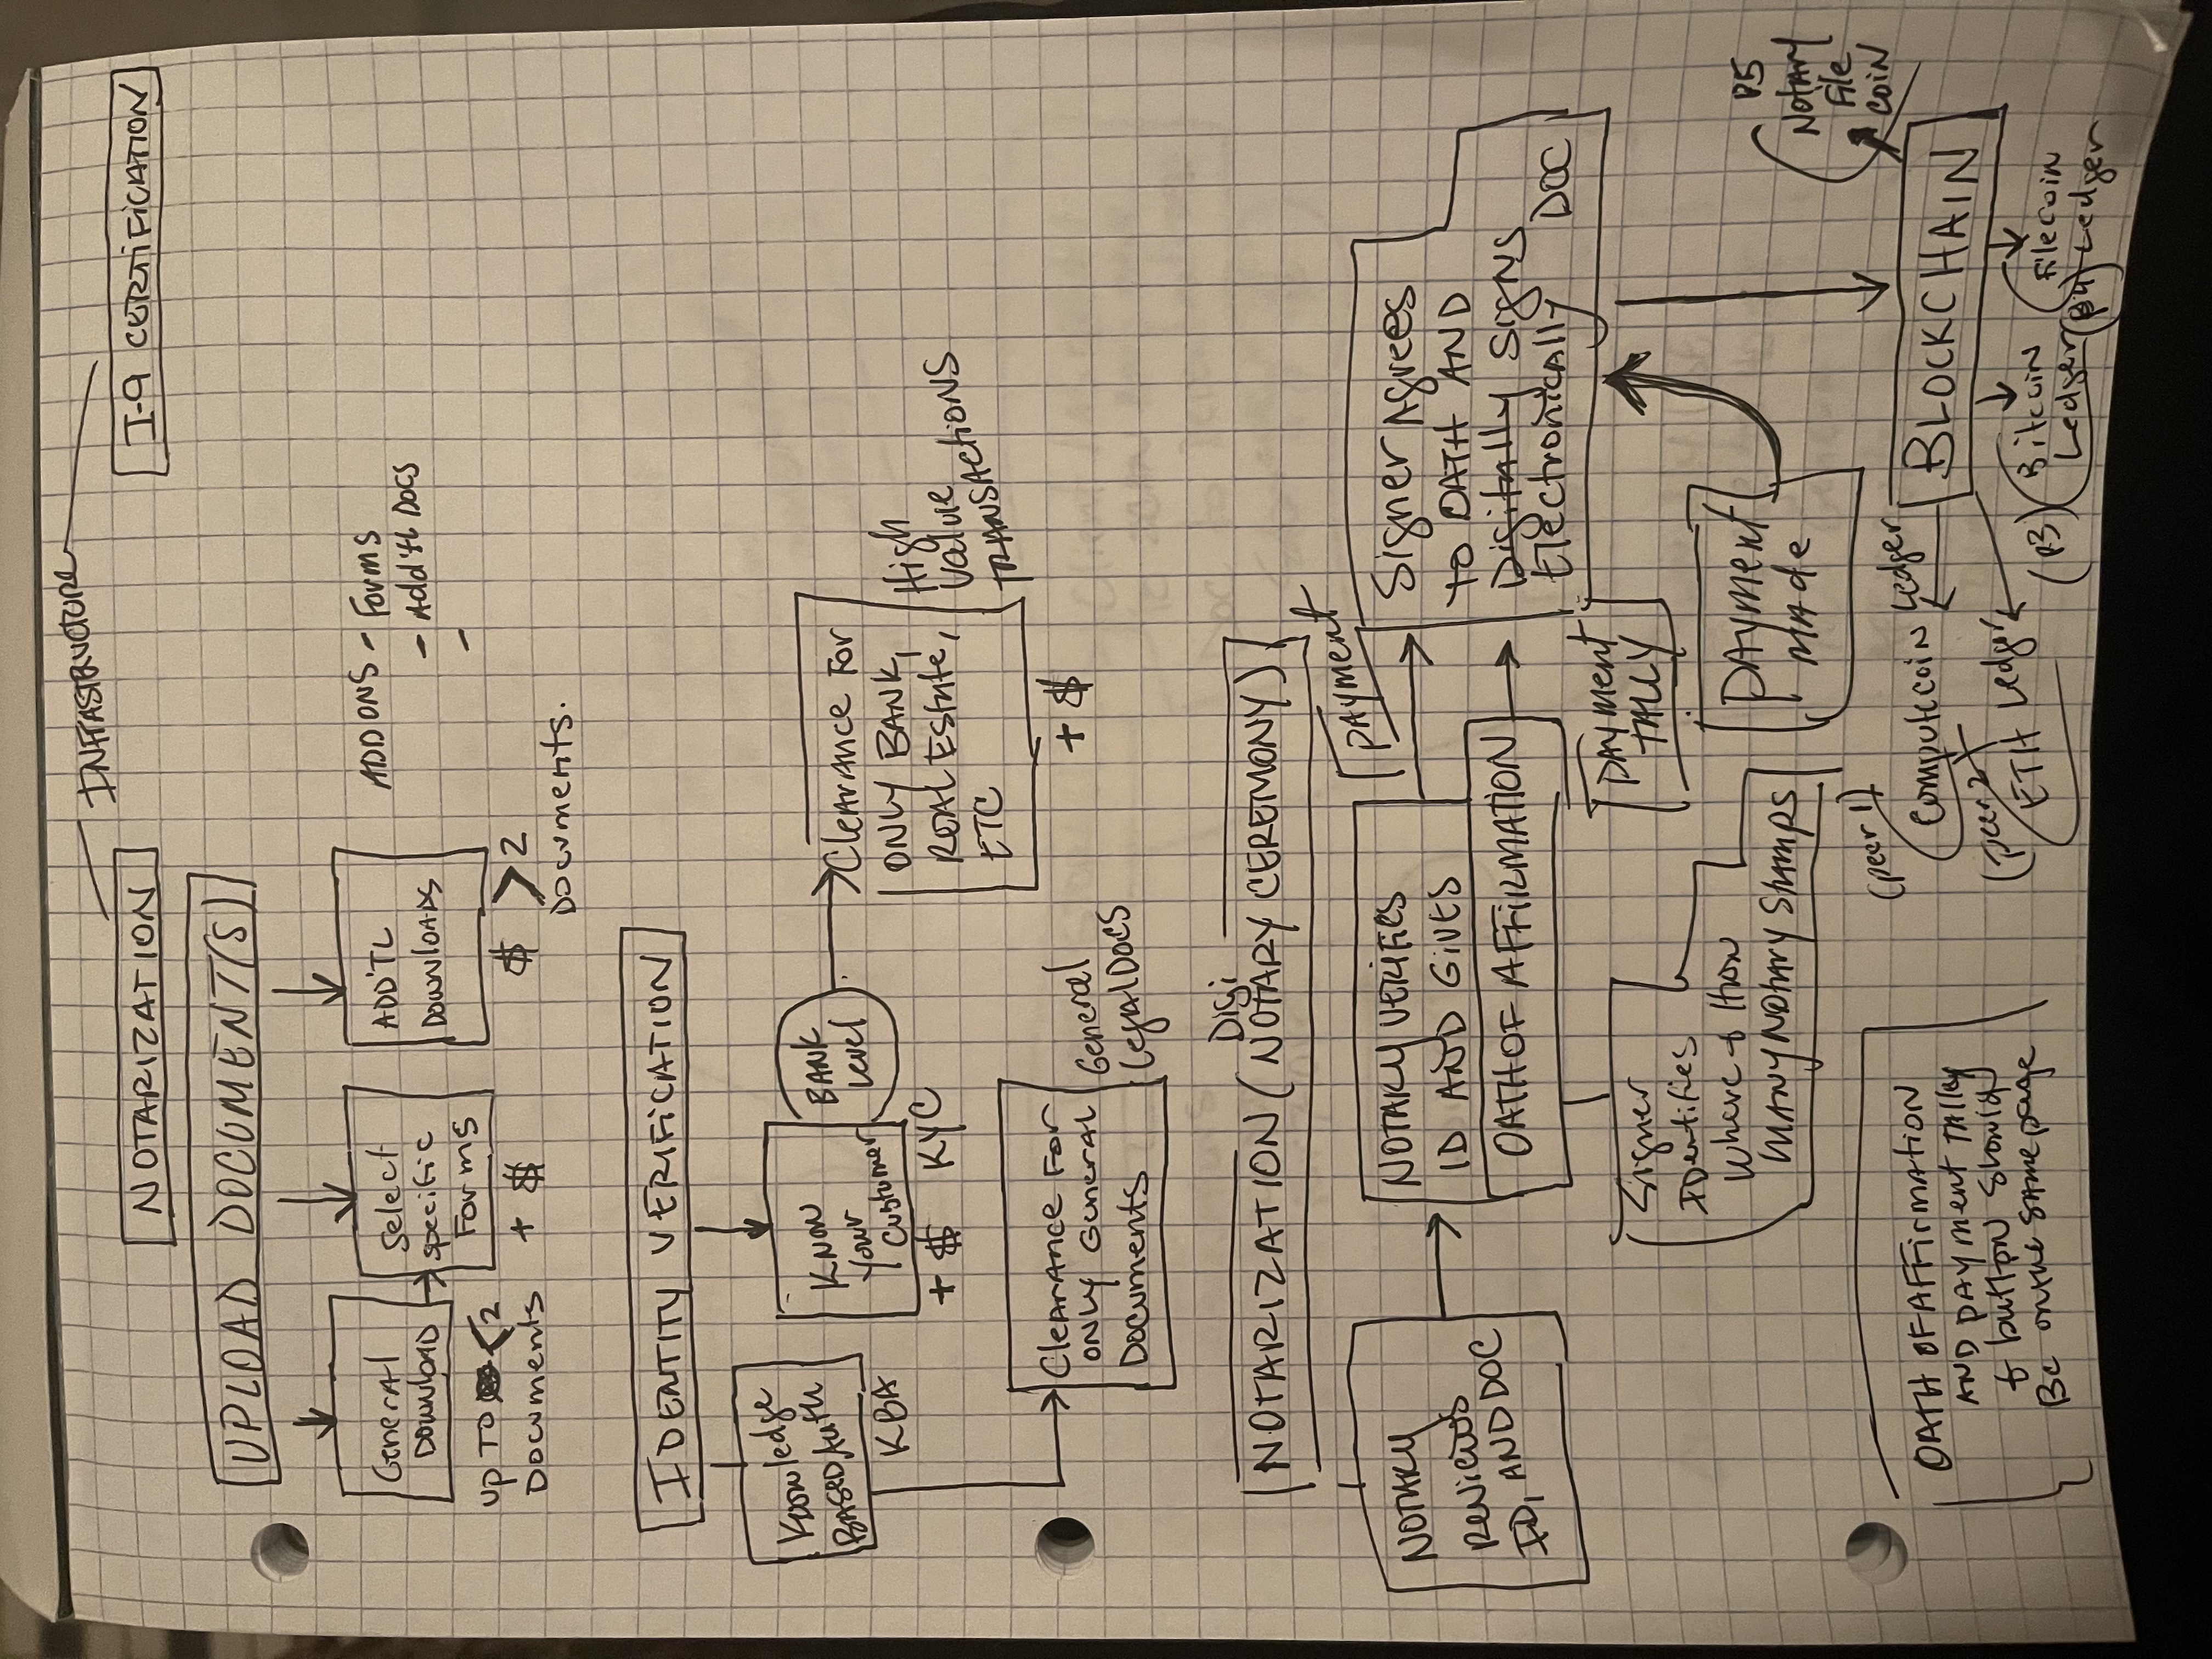 INFRASTRUCTURE
NOTARIZATION
I-9 CERTIFICATION
UPLOAD DOCUMENT(S)
General
Download
UP TO < 2
Documents
Select
specific
Forms
+ $
ADD'TL
Downloads
$ > 2
Documents.
ADDONS - Forms
- Add'tl Docs
-
IDENTITY VERIFICATION
Knowledge
BASED Auth
KBA
KNOW
Your
Customer
+ $ KYC
BANK
level
Clearance For
ONLY BANK,
REAL EState,
ETC
High
Value
TRANSACTIONS
+ $
Clearance For
ONLY General
Documents
General
Legal DOCS
Digi
NOTARIZATION (NOTARY CEREMONY)
NOTARY
Reviews
ID, AND DOC
NOTARY VERIFIES
ID AND GIVES
OATH OF AFFIRMATION
Payment
Signer Agrees
to OATH AND
Digitally SigNS
Electronically DOC
Signer
IDentifies
where + How
MANY NOtary Stamps
PAYMENT
TALLY
PAYment
MAde
OATH OF AFFirmation
AND PAYMENT TAlly
+ button Should
Be on the same page
BLOCKCHAIN
(peer 1)
Computcoin Ledger
(peer 2)
ETH Ledgr
(P3) Bitcoin
Ledger
Filecoin
(P4) Ledger
P5
Notary
File
coin